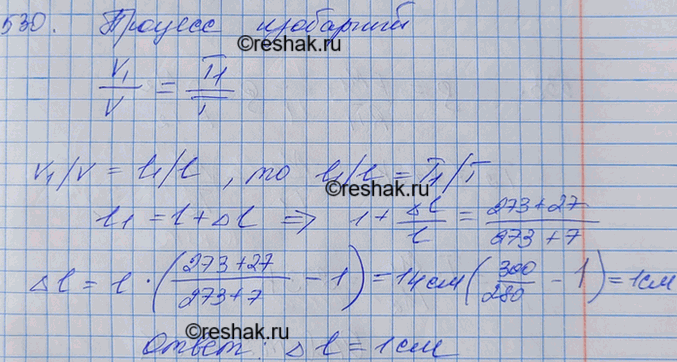 530. Процесс изобарный
©reshak.ru
V₁/V = T₁/T
V₁/V = l₁/l , то l₁/l = T₁/T
©reshak.ru
l₁ = l + Δl ⇒ 1 + Δl/l = (273+27)/(273+7)
Δl = l · ((273+27)/(273+7) - 1) = 14см (300/280 - 1) = 1см
©reshak.ru
Ответ: Δl = 1см